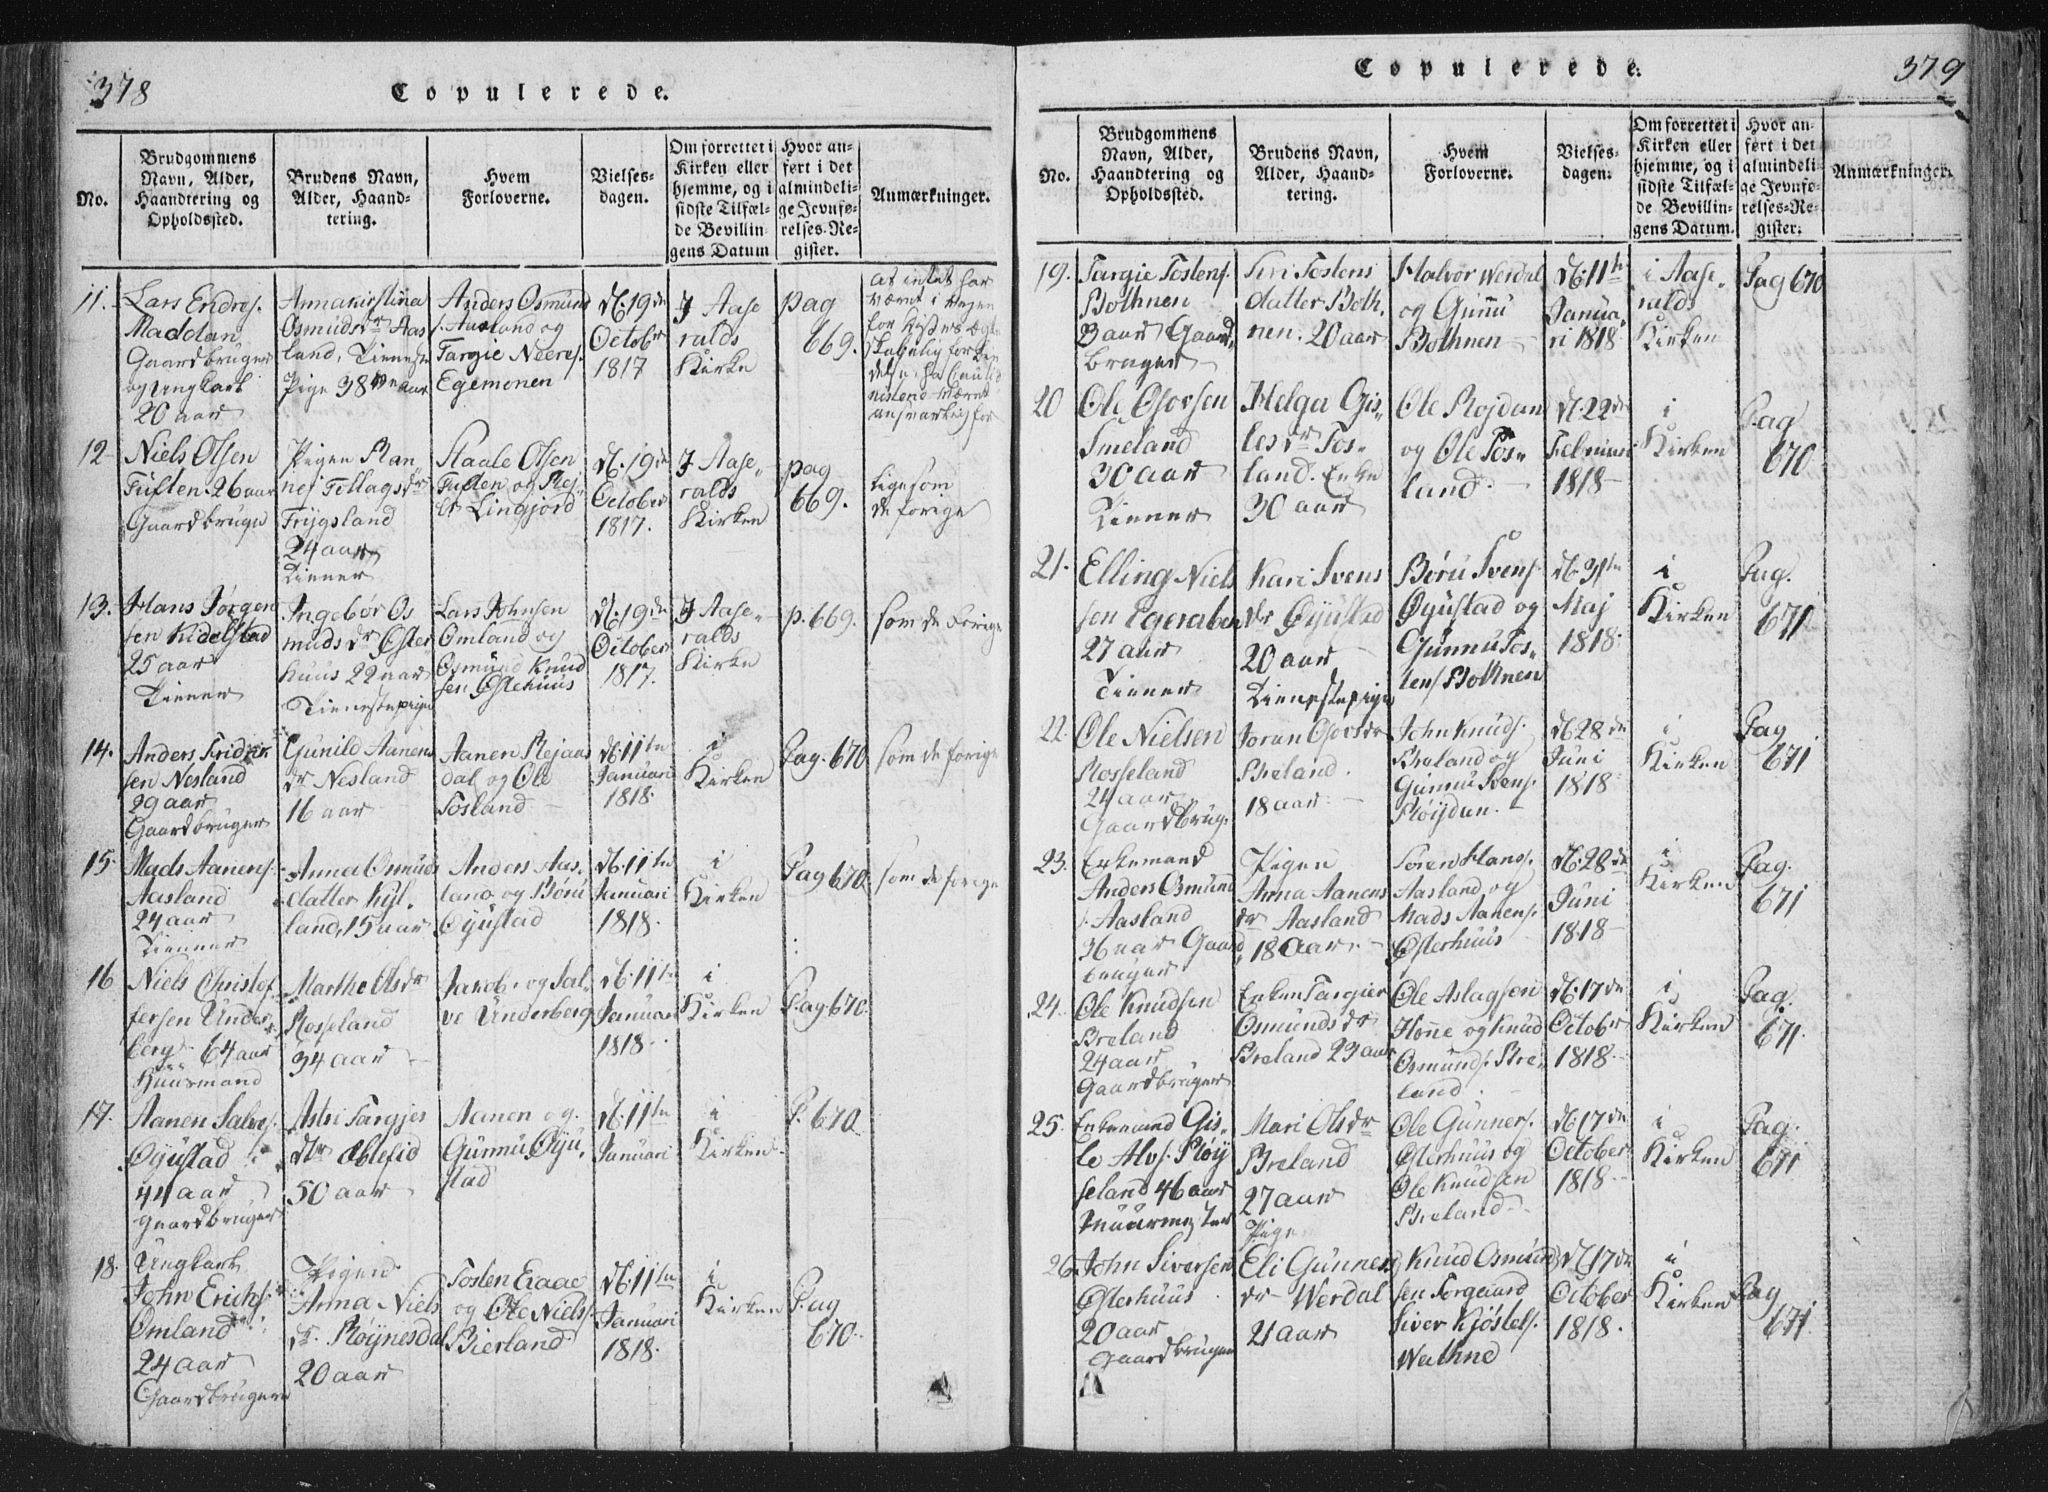 378
Copulerede.
No.
Brudgommens
Navn, Alder,
Haandtering og
Opholdssted.
Brudens Navn,
Alder, Haand-
tering.
Hvem
Forloverne.
Vielses-
dagen.
Om forrettet i
Kirken eller
hjemme, og i
sidste Tilfæl-
de Bevillin-
gens Datum
Hvor an-
ført i det
almindeli-
ge Jevnfø-
relses-Re-
gister.
Anmærkninger.
11.
Lars Endres.
Maddan
Gaardbruger
og Ungkarl
20 aar
Annakirstina
Osmuds dr Aas
land, Tieneste
Pige 38 aar
Anders Osmund
s. Aasland og
Targie Neeres.
Egemonen
d. 19de
Octobr
1817
I Aase
ralds
Kirke
pag
669.
at intet har
været i veyen
for
12
Niels Olsen
Tuften 26 aar
Gaardbruger
Pigen Ran
nei Tellags dr
Frygsland
24 aar
Tiener
Staale Olsen
Tuften og
Lingjord
d. 19de
October
1817.
I Aase-
ralds
Kirken
pag
669.
ligesom
de forige
13.
Hans Jørgen
sen Kidelstad
25 aar
Tiener
Ingebør Os
muds dr Øster
huus 22 aar
Tienestepige
Lars Johnsen
Omland og
Osmund Knud
sen Østehuus
d. 19de
October
1817.
I Aase-
ralds
Kirke
p. 669.
som de forige
14.
Anders Fridrik
sen Nesland
29 aar
Gaardbruger
Gunild Aanen
dr Nesland
16 aar
Aanen Rejaas
dal og Ole
Tosland
d. 11te
Januari
1818
i
Kirken
Pag. 670
som de forige
15.
Mads Aanens.
Aasland
24 aar
Tiener
Anna Osmuds
datter Kyl-
land, 15 aar
Anders Aas-
land og Børu
Øyustad
d. 11te
Januari
1818.
i
Kirken
Pag 670
som de forige
16
Niels Christof
fersen Under-
berg. 64 aar
Huusmand
Marthe Olsdr
Rosseland
34 aar
Jacob og Sal-
ve Underberg
d. 11te
Januari
1818
i
Kirken
Pag 670.
17.
Aanen Salves.
Øyustad
44 aar
Gaardbruger
Astri Targjes
dr Ablefid
50 aar
Aanen og
Gunnu Øyu-
stad
d. 11te
Januari
i
Kirken
P. 670
18.
Ungkarl
John Erichs.
Omland
24 aar
Gaardbruger
Pigen
Anna Niels
dr. Røynesdal
20 aar
Tosten Eaae
og Ole Niels.
Bierland
d. 11te
Januari
1818.
i
Kirken
Pag
670.
379
Copulerede.
No.
Brudgommens
Navn, Alder,
Haandtering og
Opholdssted.
Brudens Navn,
Alder, Haand-
tering.
Hvem
Forloverne.
Vielses-
dagen.
Om forrettet i
Kirken eller
hjemme, og i
sidste Tilfæl-
de Bevillin-
gens Datum.
Hvor an-
ført i det
almindeli-
ge Jevnfø-
relses-Re-
gister.
Anmærkninger.
19.
Targie Tostens.
Bothnen
aar Gaard-
bruger
Siri Tostens
datter Both-
nen. 20 aar
Halvor Werdal
og Gunnu
Bothnen
d. 11te
Janua-
ri 1818
i Aase-
ralds
Kirken
Pag 670
20
Ole Osovsen
Smeland
30 aar
Tiener
Helga Gis-
les dr Fos-
land. Enke
30 aar
Ole Rojdan
og Ole Fos-
land.
d. 22de
Februari
1818
i
Kirken
Pag
670
21.
Elling Niels
sen Egeraben
27 aar
Tiener
Kari Svens
dr Øyustad
20 aar
Tienestepige
Børu Svens.
Øyustad og
Gunnu Tos-
tens Bothnen
d. 31te
Maj
1818.
i
Kirken
Pag.
671
22.
Ole Nielsen
Rosseland
24 aar
Gaardbrug.
Joran Osovsdr
Breland.
18 aar
John Knuds.
Breland og
Gunnu Svens.
Røydan.
d. 28de
Juni
1818
i
Kirken
Pag
671
23.
Enkemand
Anders Osmund
s. Aasland
36 aar Gaard
bruger
Pigen
Anna Aanens
dr Aasland
18 aar.
Søren Hans.
Aasland og
Mads Aanens.
Østerhuus
d. 28de
Juni
1818
i
Kirken
Pag.
671
24.
Ole Knudsen
Breland
24 aar
Gaardbruger
Enken Targier
Osmunds dr
Breland 23 aar
Ole Aslagsen
Honne og Knud
Osmunds. Bre-
land
d. 17de
Octobr
1818
i
Kirken
Pag.
671.
25.
Enkemand Gis-
le Alvs. Røy
seland 46 aar
Mari Olsdr
Breland
27 aar
Pige
Ole Gunners.
Østerhuus og
Ole Knudsen
Breland
d. 17de
October
1818
i
Kirken
Pag.
671
26.
John Siversen
Østerhuus
20 aar
Gaardbruger
Eli Gunners
dr Werdal
21 aar
Knud Osmund
sen Torgaard
Siver Kjøstels.
Wathne
d. 17de
October
1818.
i
Kirken
Pag
671.